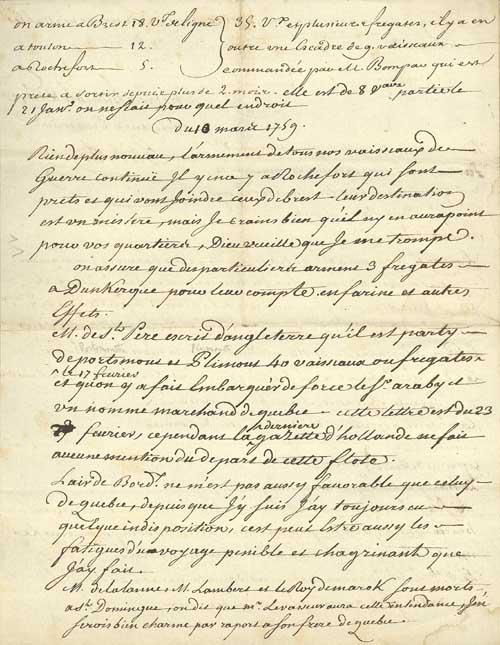 on arme a Brest 18. Vx de ligne } 35. Vx et plusieurs fregates, il y a en
a toulon 12. outre une Escadre de 9. vaisseaux
a Rochefort 5. commandée par M Bompar qui est
prete a sortir depuis plus de 2. mois. elle est de 8 vaux partie le
21 Janv. on ne sait pour quel endroit
Du 10 mars 1759.
Rien de plus nouveau, L'armement de tous nos vaisseaux de
Guerre continue Il y en a 7 a Rochefort qui sont
prets et qui vont Joindre ceux de brest leur destination
est un mistere, mais Je crains bien quil ny en aura point
pour vos quartiers, Dieu vueille que Je me trompe.
on assure que des particuliers arment 3 fregates
a Dunkerque pour leur compte en farine et autres
Effets.
M. de St. Pere escrit d'angleterre qu'il est party
de portsmous et Plimous 40 vaisseaux ou fregates
le 17 fevrier
et quon y a fait Embarquer de force le Sr. araby et
un nomme marchand de quebec cette lettre est du 23
fevrier, cependans la derniere gazette d'hollande ne fait
aucune mention du depars de cette flote.
L'air de Bordx. ne m'est pas aussy favorable que celuy
de quebec, depuis que J'y suis J'ay toujours eu
quelque indisposition, cest peut Estre aussy les
fatigues du voyage penible et chagrinant que
J'ay fait.
M. Delalanne, M. Lambert et le Roy de marok sont morts
a St. Domingue, on dit que mr. Levasseur aura cette intendance, J'en
serois bien charmé par raport a son frere de quebec.